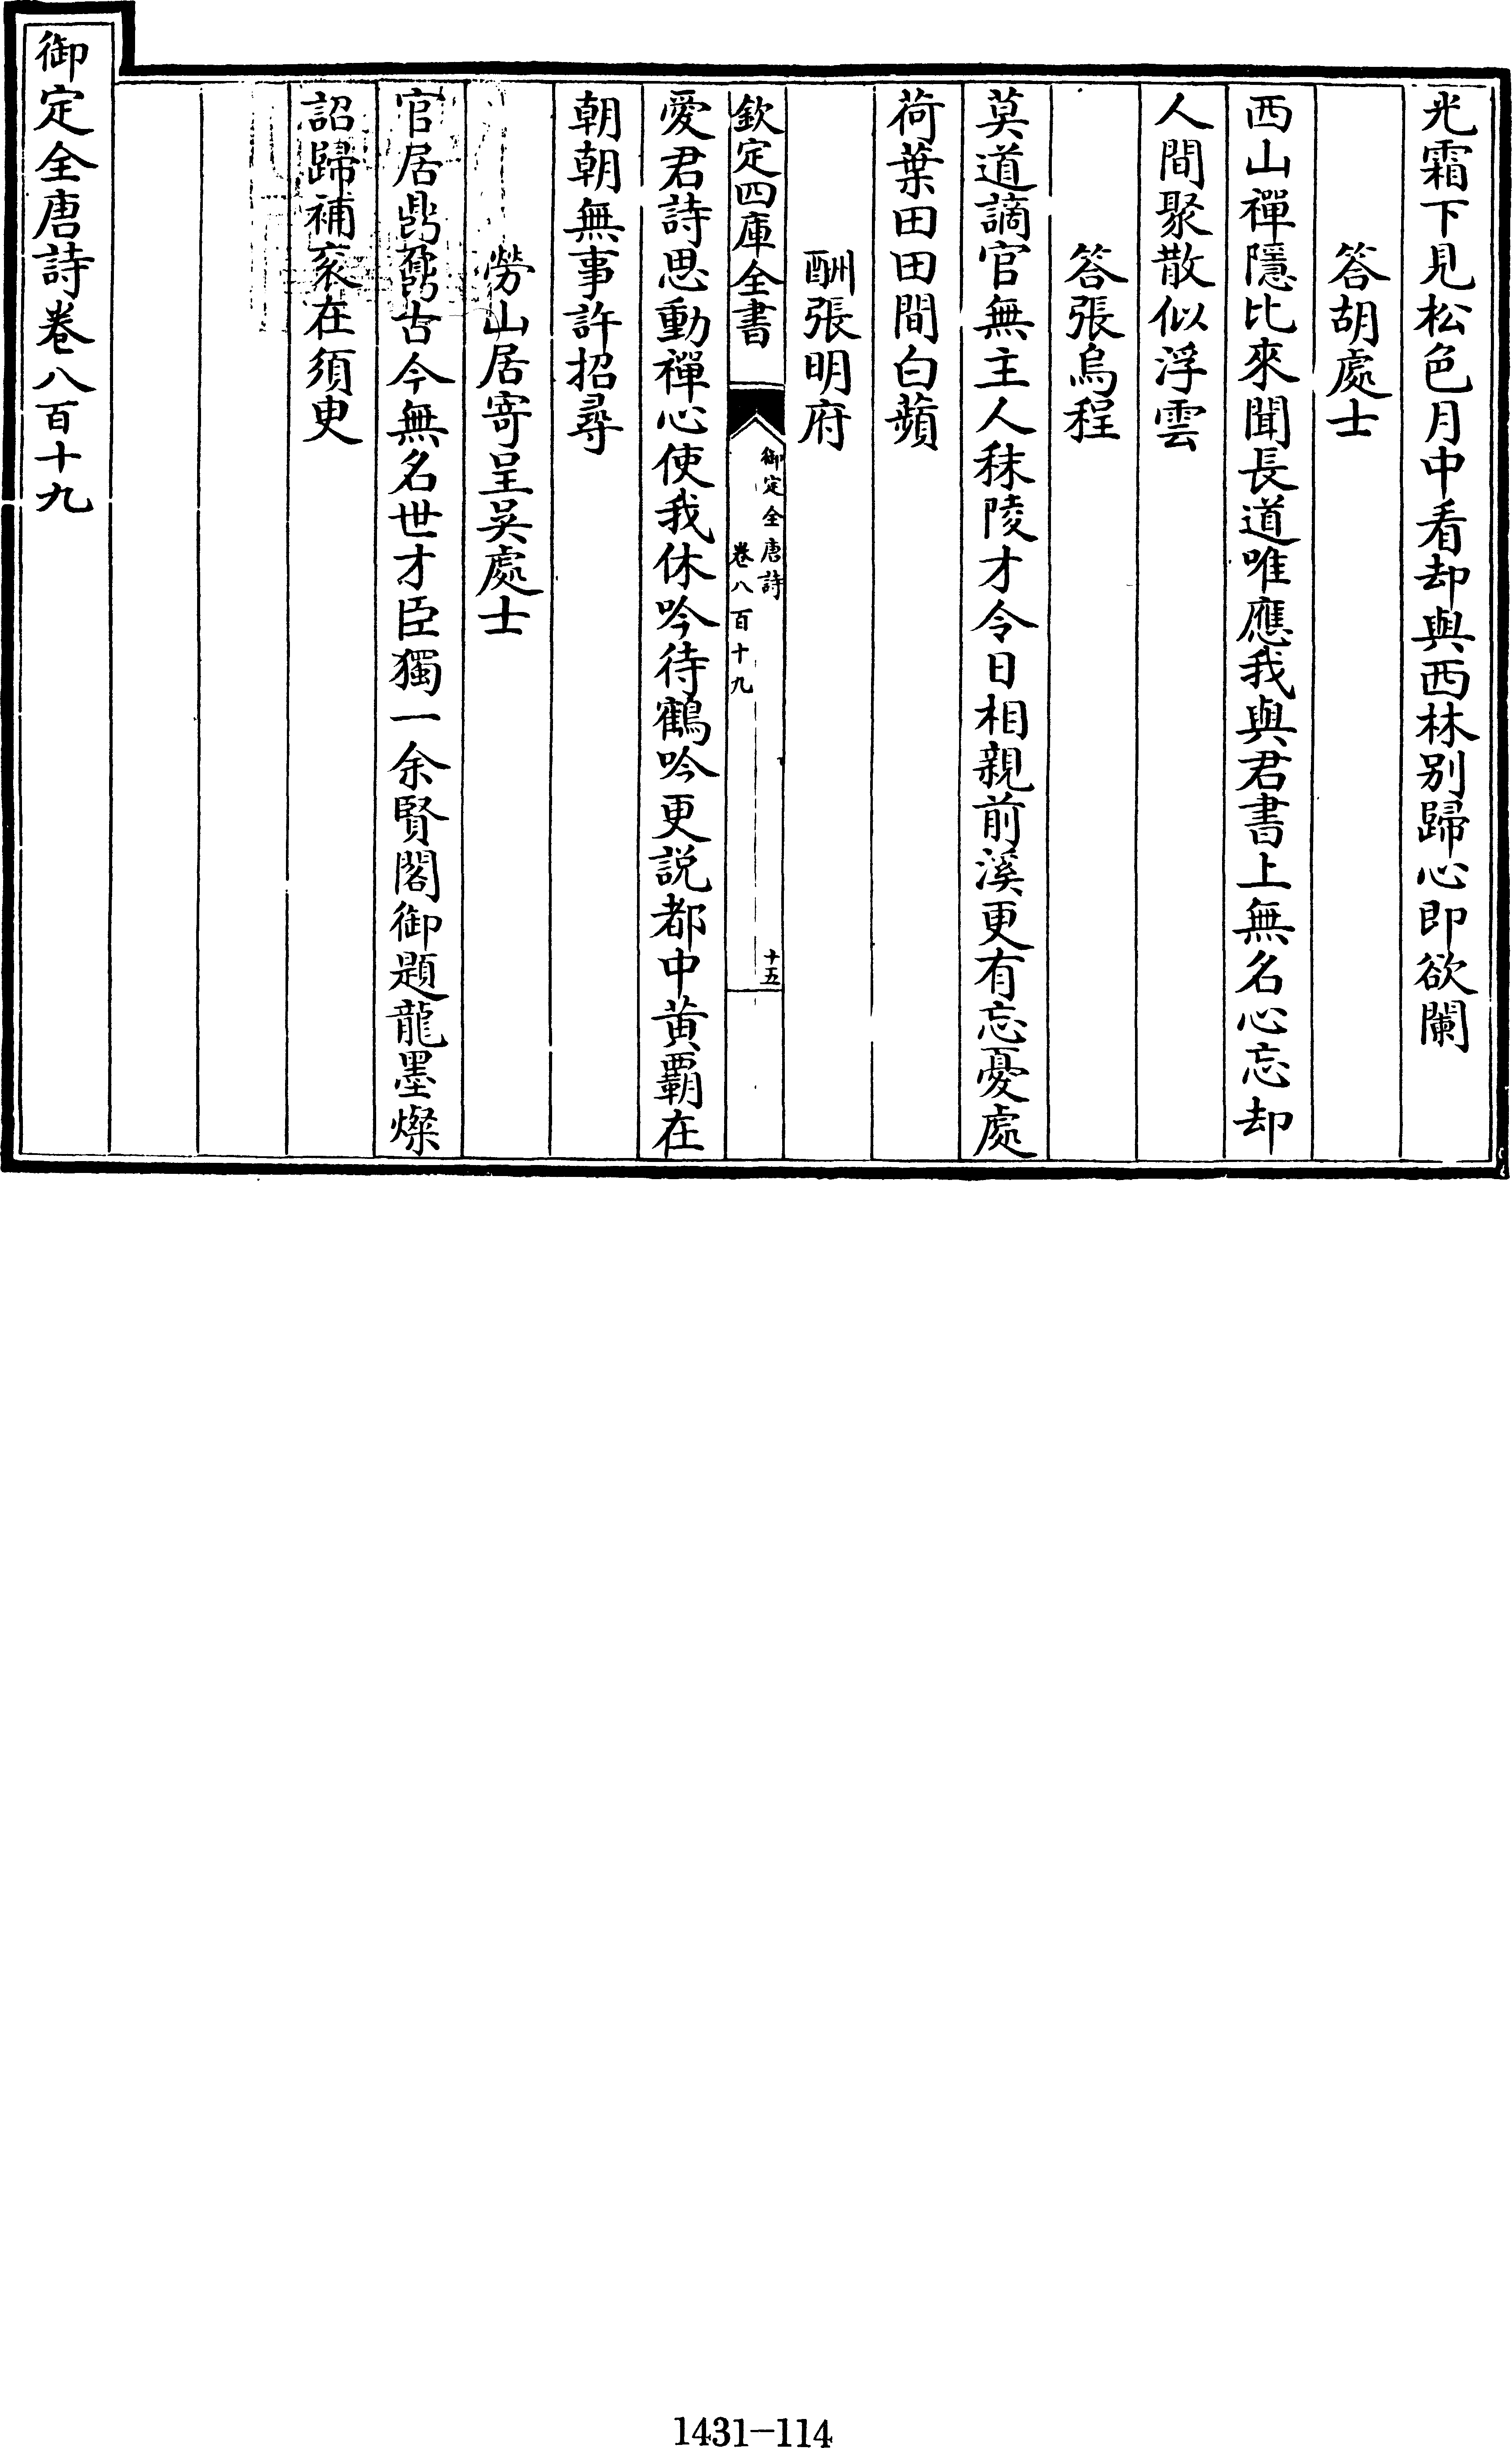 光霜下見松色月中看却與西林别歸心即欲闌
答胡處士
西山禪隱比來聞長道唯應我與君書上無名心忘却
人間聚散似浮雲
答張烏程
莫道謫官無主人秣陵才令日相親前溪更有忘憂處
荷葉田田間白蘋
酬張明府
欽定四庫全書
御定全唐詩
卷八百十九
十五
愛君詩思動禪心使我休吟待鶴吟更説都中黄霸在
朝朝無事許招尋
勞山居寄呈吳處士
官居鼎鼐古今無名世才臣獨一余賢閣御題龍墨燦
詔歸補衮在須臾
御定全唐詩卷八百十九
1431-114